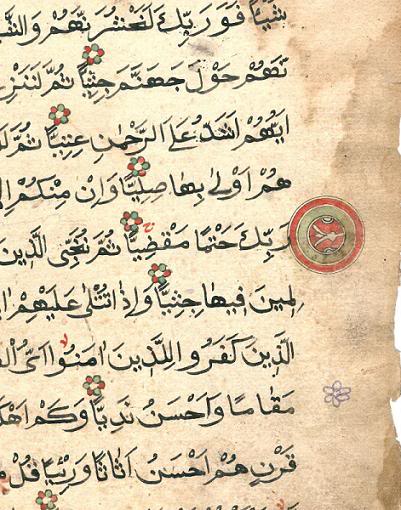 شَيْئًا فَوَرَبِّكَ لَنَحْشُرَنَّهُمْ وَالشَّ
نَّهُمْ حَوْلَ جَهَنَّمَ جِثِيًّا ثُمَّ لَنَنْزِعَ
اَيُّهُمْ اَشَدُّ عَلَى الرَّحْمٰنِ عِتِيًّا ثُمَّ لَ
هُمْ اَوْلٰى بِهَا صِلِيًّا وَاِنْ مِنْكُمْ اِلَّ
رَبِّكَ حَتْمًا مَقْضِيًّا ثُمَّ نُنَجِّى الَّذِينَ
لِمِينَ فِيهَا جِثِيًّا وَاِذَا تُتْلٰى عَلَيْهِمْ اٰ
الَّذِينَ كَفَرُوا لِلَّذِينَ اٰمَنُوا اَىُّ الْفَ
مَقَامًا وَاَحْسَنُ نَدِيًّا وَكَمْ اَهْلَكْ
قَرْنٍ هُمْ اَحْسَنُ اَثَاثًا وَرِئْيًا قُلْ مَ